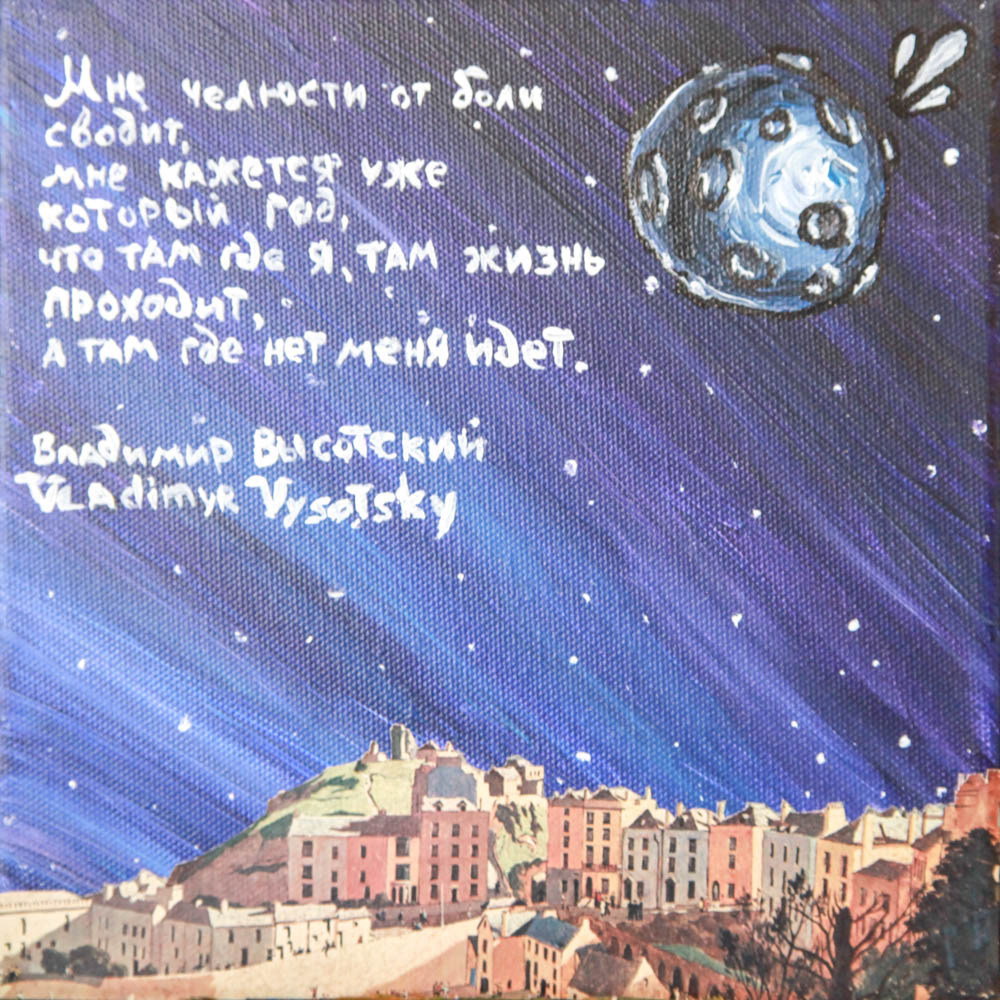 Мне челюсти от боли
сводит,
мне кажется уже
который год,
что там где я, там жизнь
проходит,
а там где нет меня идет.
Владимир Высотский
Vladimyr Vysotsky